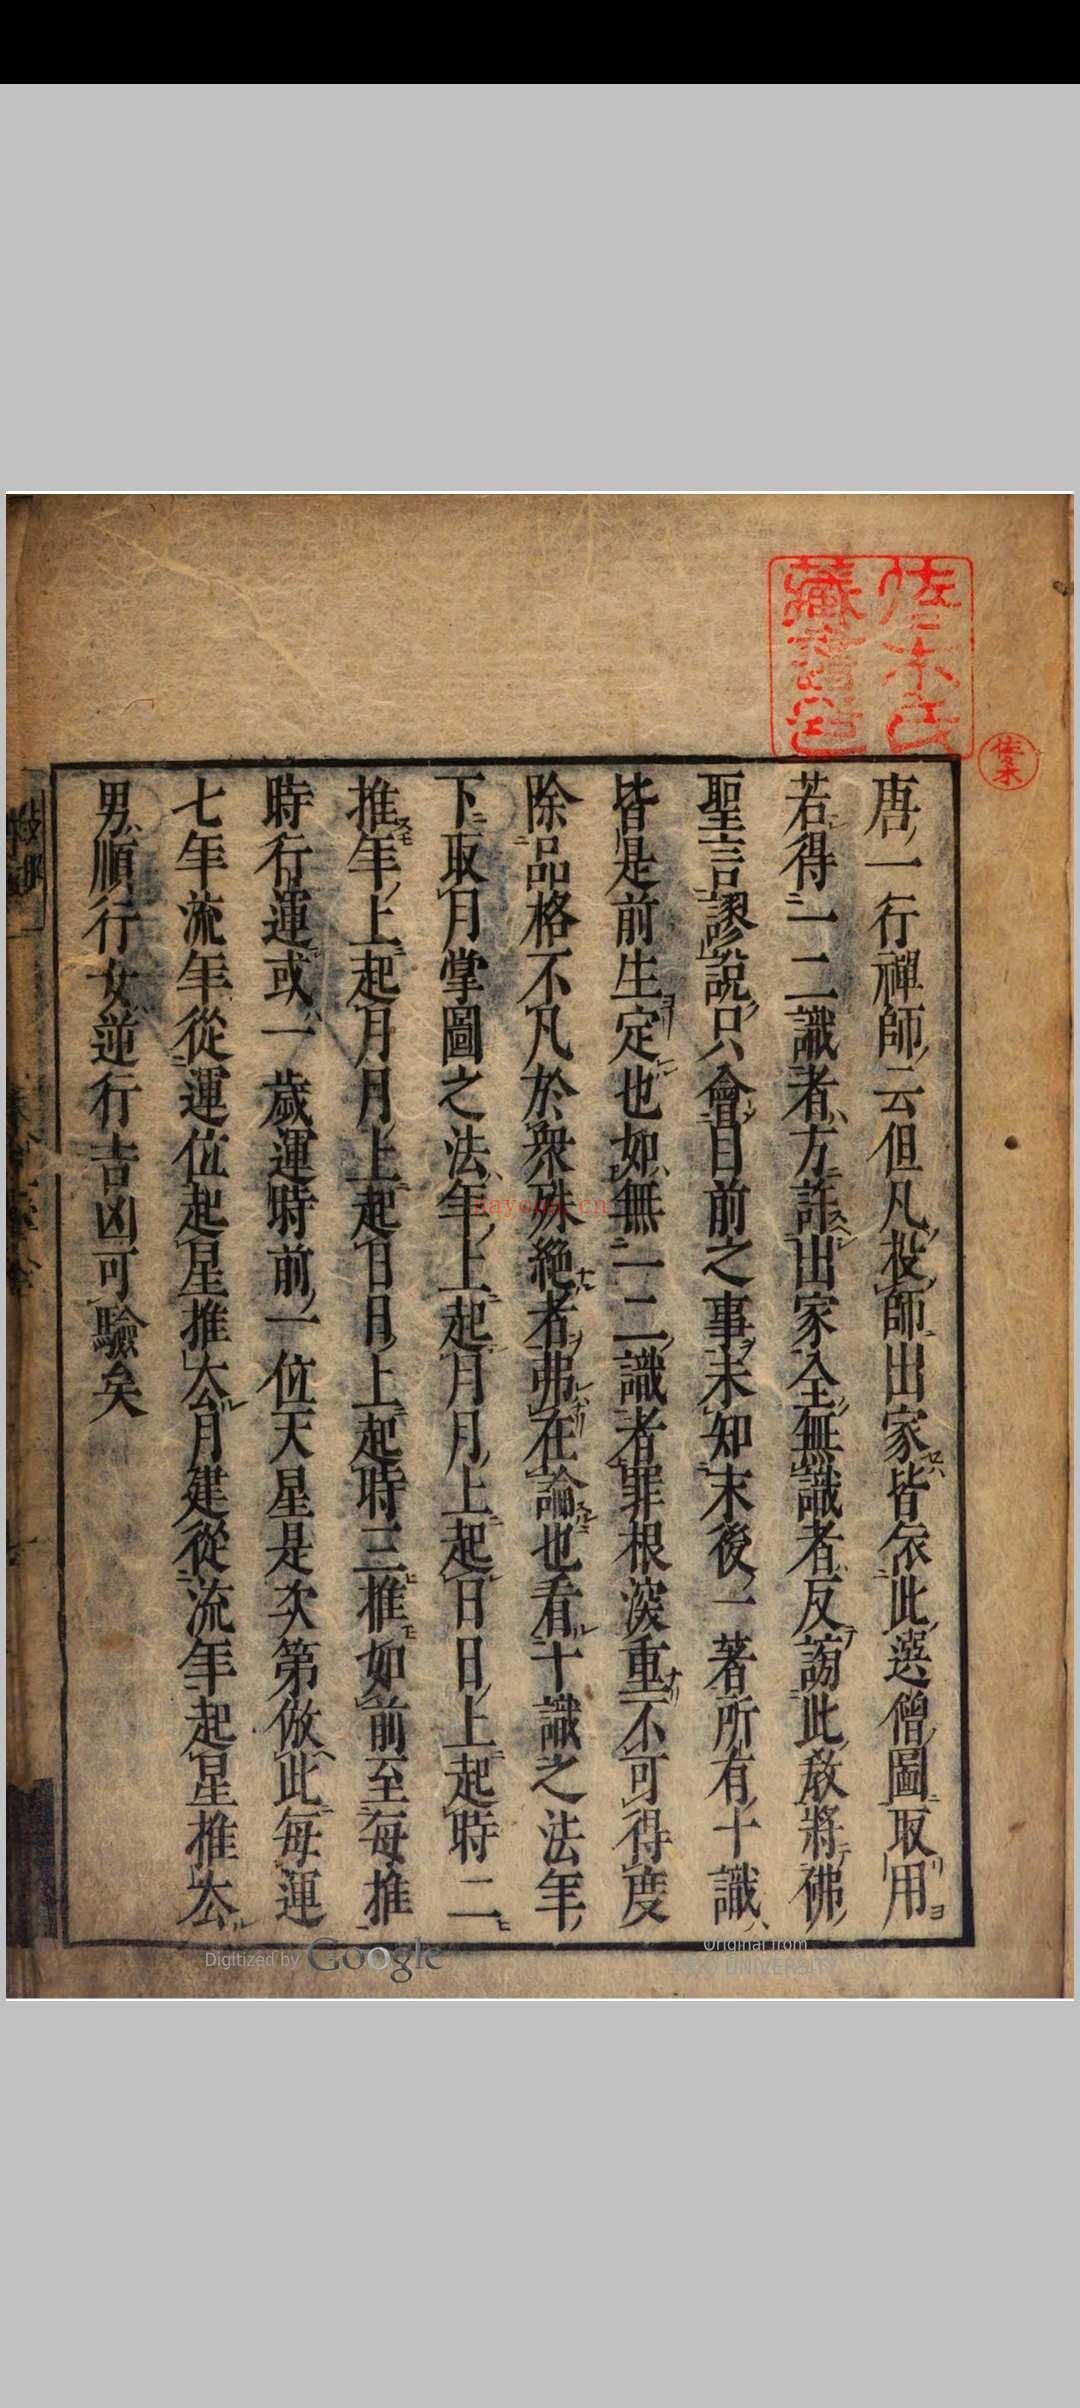 唐一行禪師云但凡投師出家皆依此選僧圖取用
若得一二識者方許出家全無識者反謗此教將佛
聖言謬說只會目前之事未知末後一著所有十識
皆是前生定也如無一二識者罪根深重不可得度
除品格不凡於衆殊絶者弗在論也看十識之法年
下取月掌圖之法年上起月月上起日日上起時二
推年上起月月上起日月上起時三推如前至每推
時行運或一歲運時前一位天星是次第倣此每運
七年流年從運位起星推去月建從流年起星推去
男順行女逆行吉凶可驗矣
佐々木氏
藏書邑
佐々木
nayona.cn
Digitized by Google
Original from
UNIVERSITY